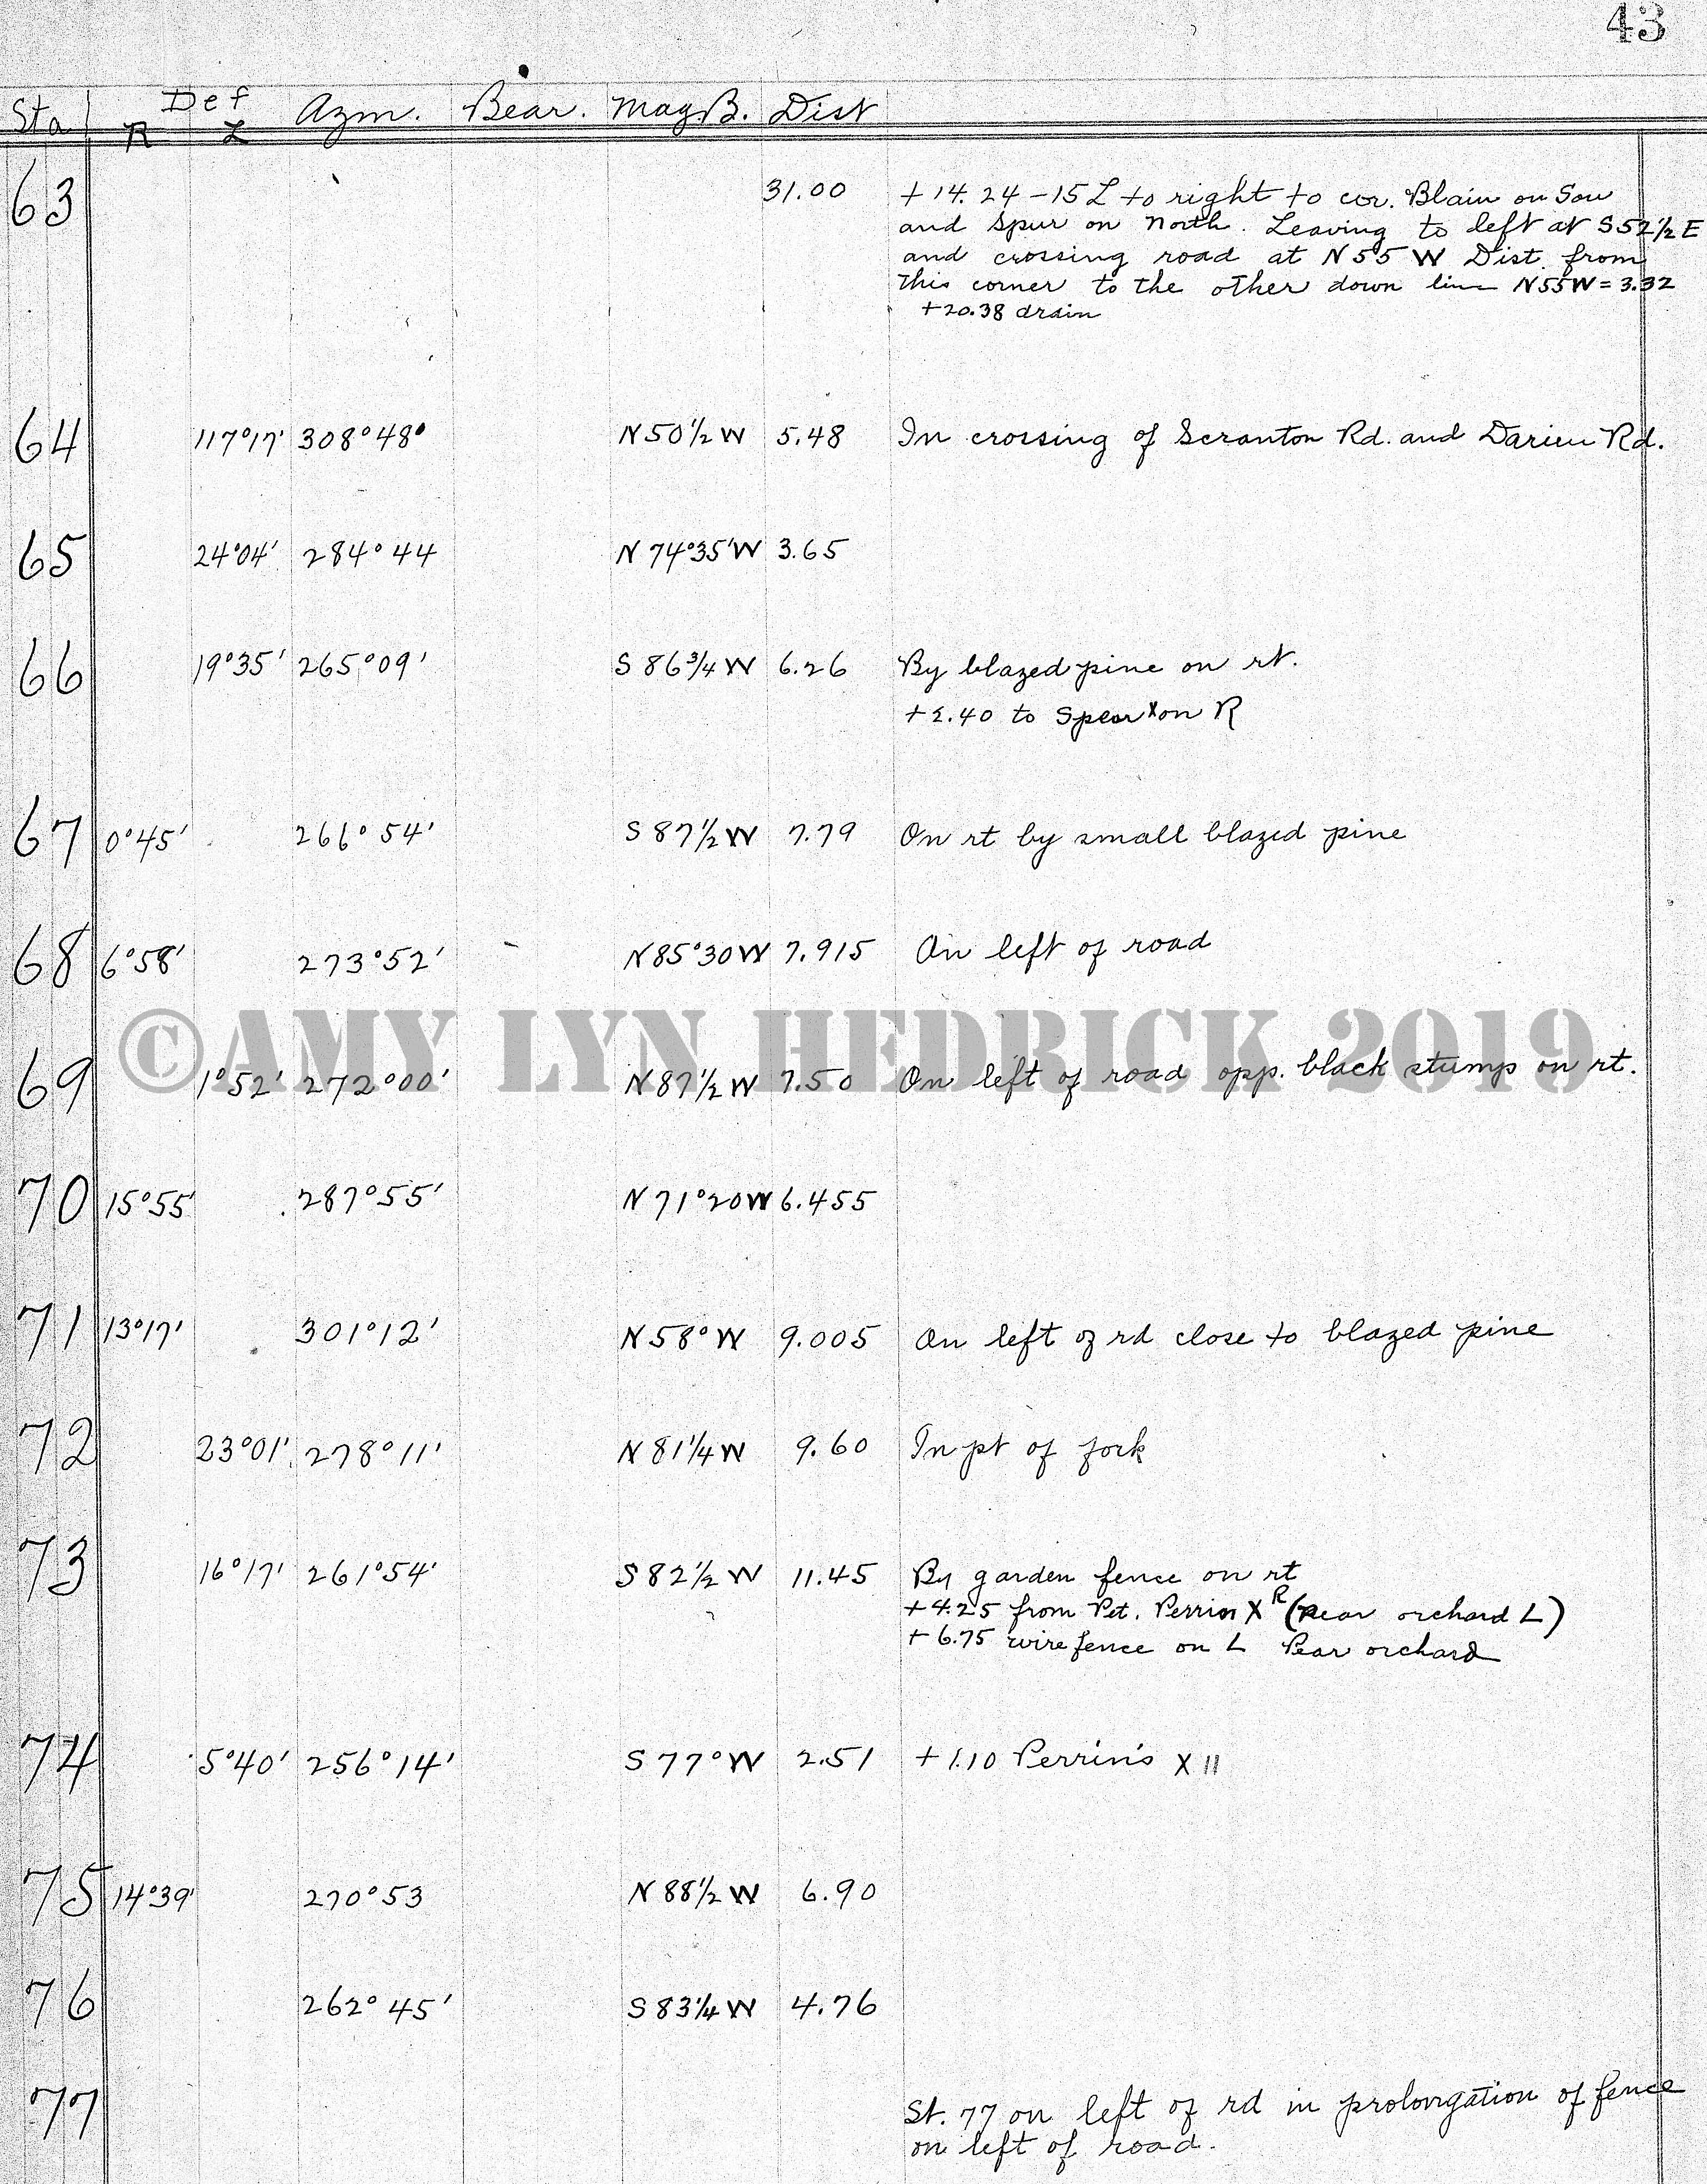 43
Sta Def R L Azm. Bear. Mag B. Dist
63 31.00 + 14.24 - 15 L to right to cor. Blain on Sou
and Spur on North. Leaving to left at S 52 1/2 E
and crossing road at N 55 W Dist. from
this corner to the other down line N55W = 3.32
+20.38 drain
64 117°17' 308°48' N 50 1/2 W 5.48 In crossing of Scranton Rd. and Darien Rd.
65 24°04' 284°44 N 74°35'W 3.65
66 19°35' 265°09' S 86 3/4 W 6.26 By blazed pine on rt.
+2.40 to Spear X on R
67 0°45' 266°54' S 87 1/2 W 7.79 On rt by small blazed pine
68 6°58' 273°52' N85°30W 7.915 On left of road
©AMY LYN HEDRICK 2019
69 1°52' 272°00' N87 1/2 W 7.50 On left of road opp. black stump on rt.
70 15°55' 287°55' N 71°20W 6.455
71 13°17' 301°12' N 58° W 9.005 On left of rd close to blazed pine
72 23°01' 278°11' N 81 1/4 W 9.60 In pt of fork
73 16°17' 261°54' S 82 1/2 W 11.45 By garden fence on rt
+4.25 from Pet. Perrin X R (near orchard L)
+ 6.75 wire fence on L Pear orchard
74 5°40' 256°14' S 77° W 2.51 + 1.10 Perrin's X 11
75 14°39' 270°53 N 88 1/2 W 6.90
76 262°45' S 83 1/4 W 4.76
77 St. 77 on left of rd in prolongation of fence
on left of road.